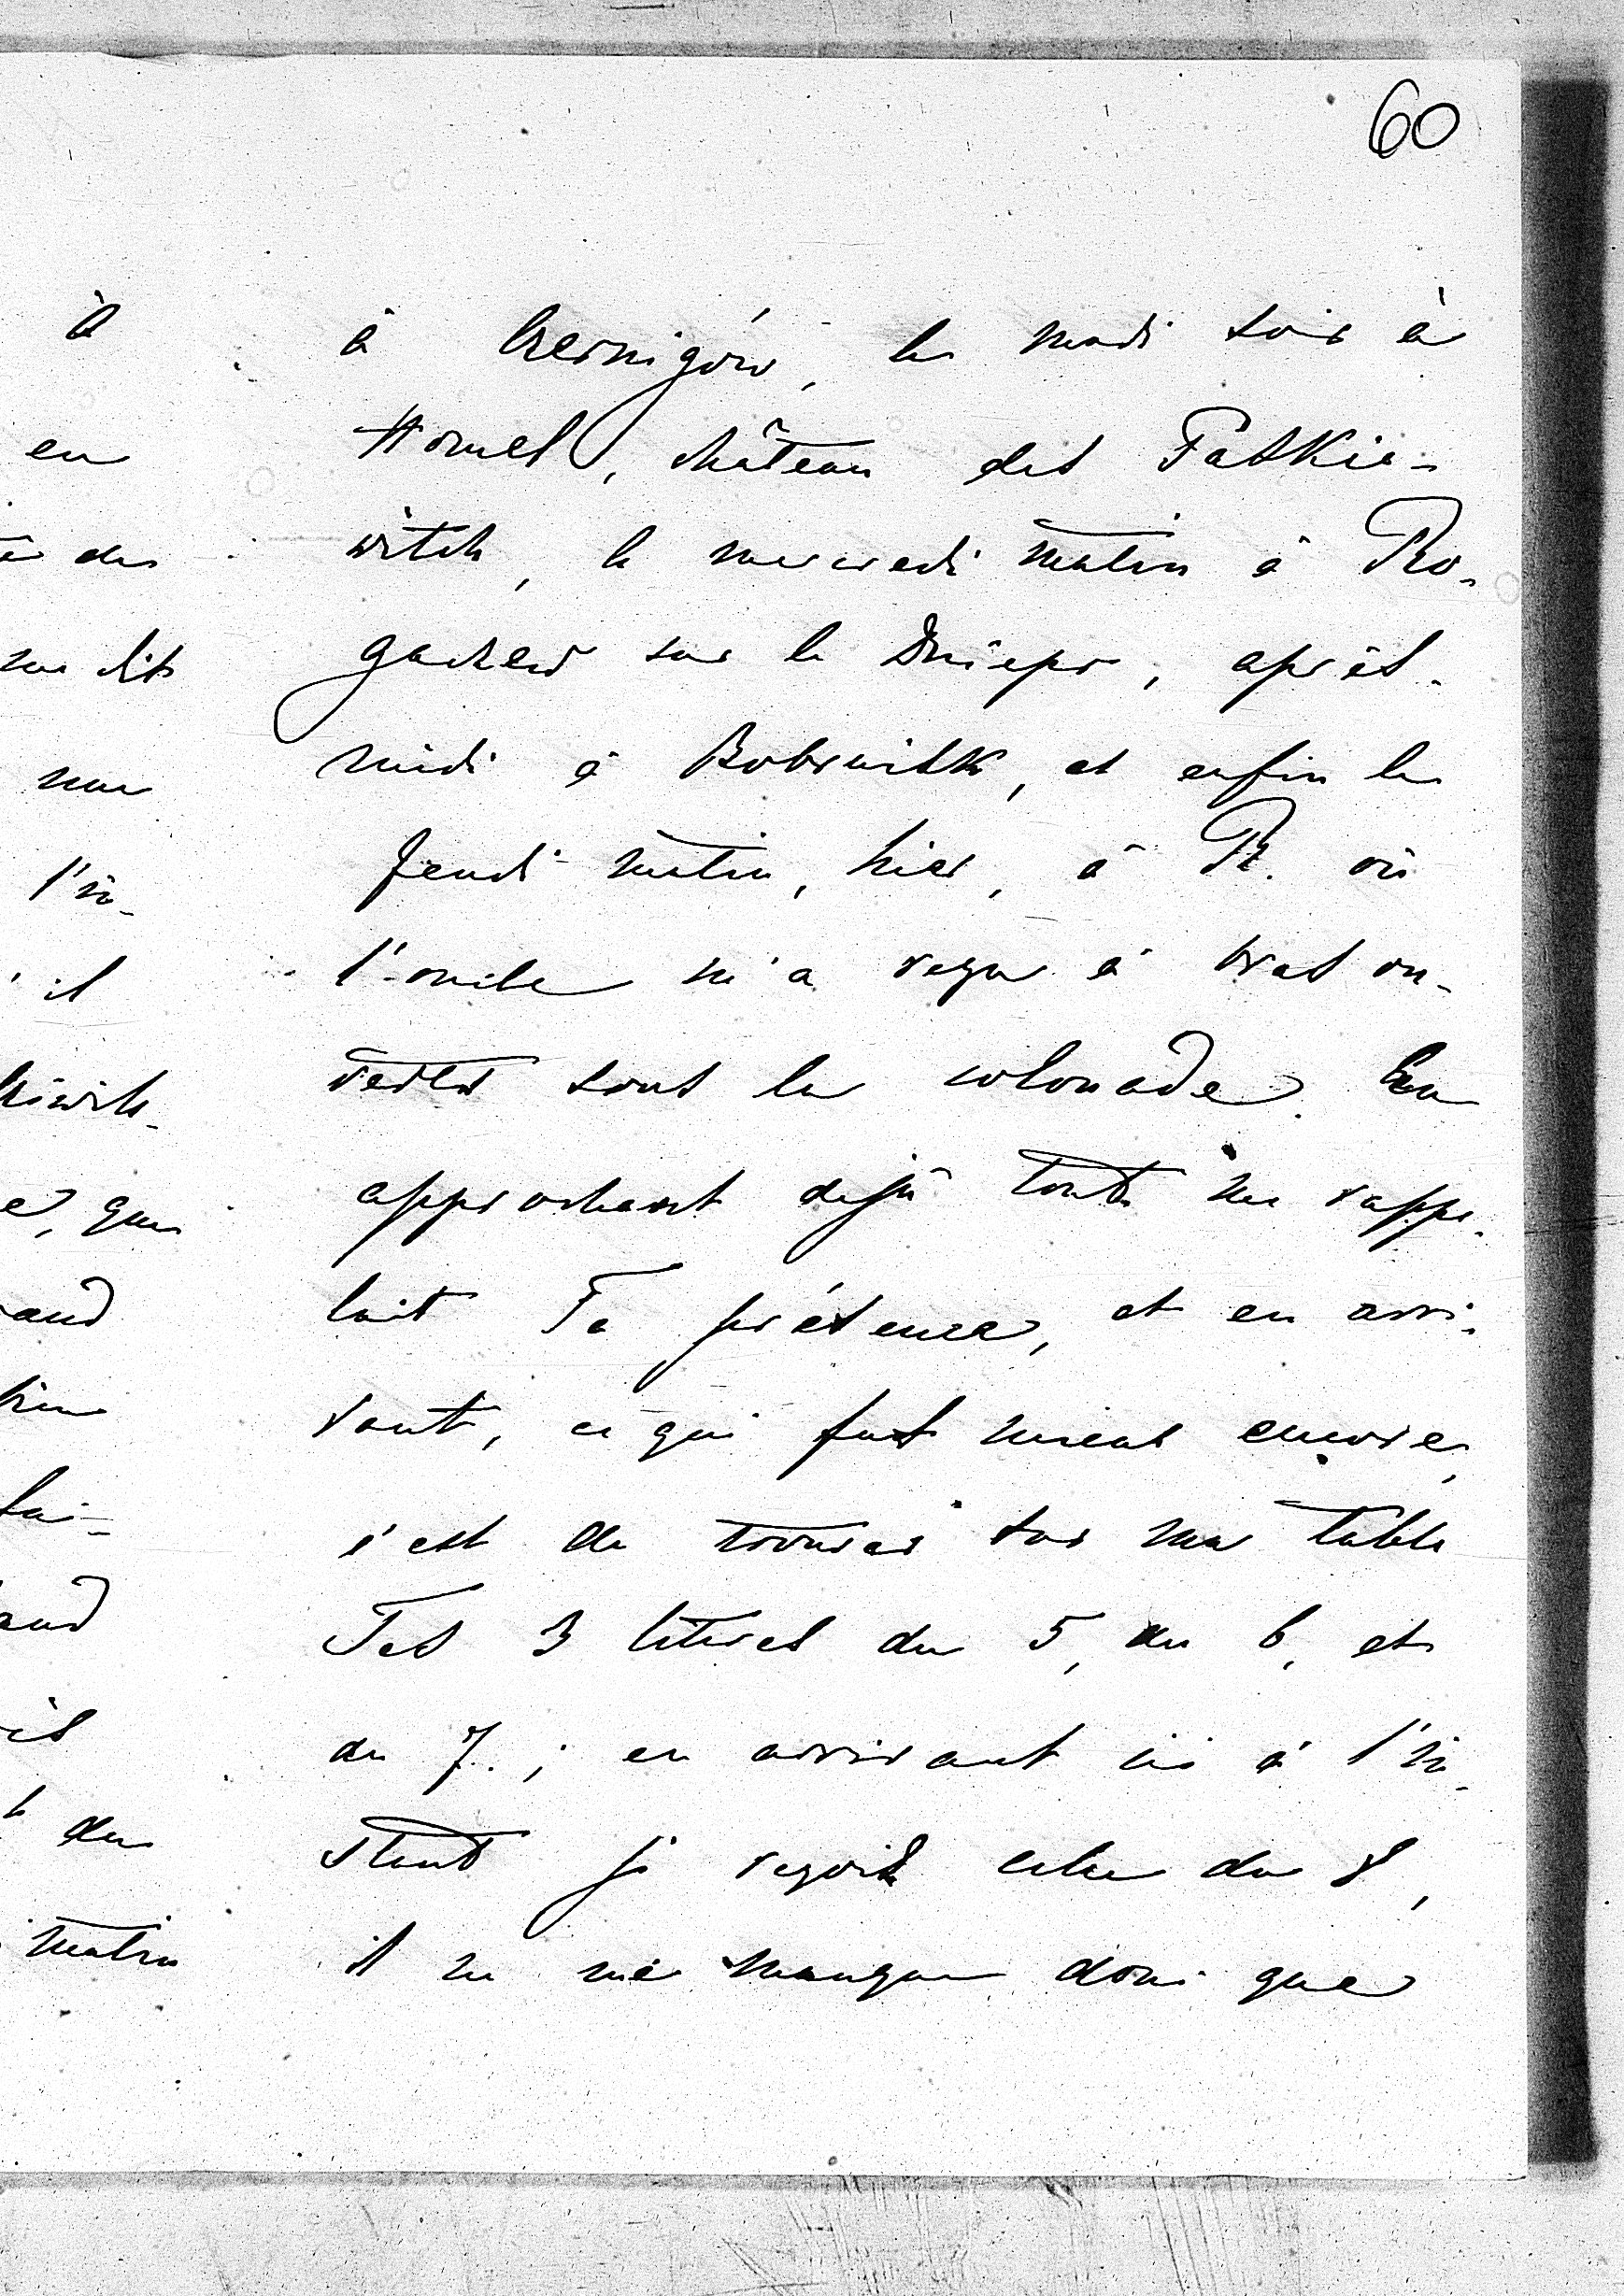 60
à
en
des
me dit
l'in-
il
que
matin
à Czernigów, le mardi soir à
Homel, château des Paskie-
witch, le mercredi matin à Ro-
gaczew sur le Dniepr, après-
midi à Bobruisk, et enfin le
Jeudi matin, hier, à R. où
l'oncle m'a reçu à bras ou-
verts sous la colonade. En
approchant dejà tout me rappe-
lait Ta présence, et en arri-
vant, ce qui fut mieux encore,
c'est de trouver sur ma table
Tes 3 lettres du 5, du 6, et
du 7.; en arrivant ici à l'in-
stant je reçois celle du 8,
il ne me manque donc que